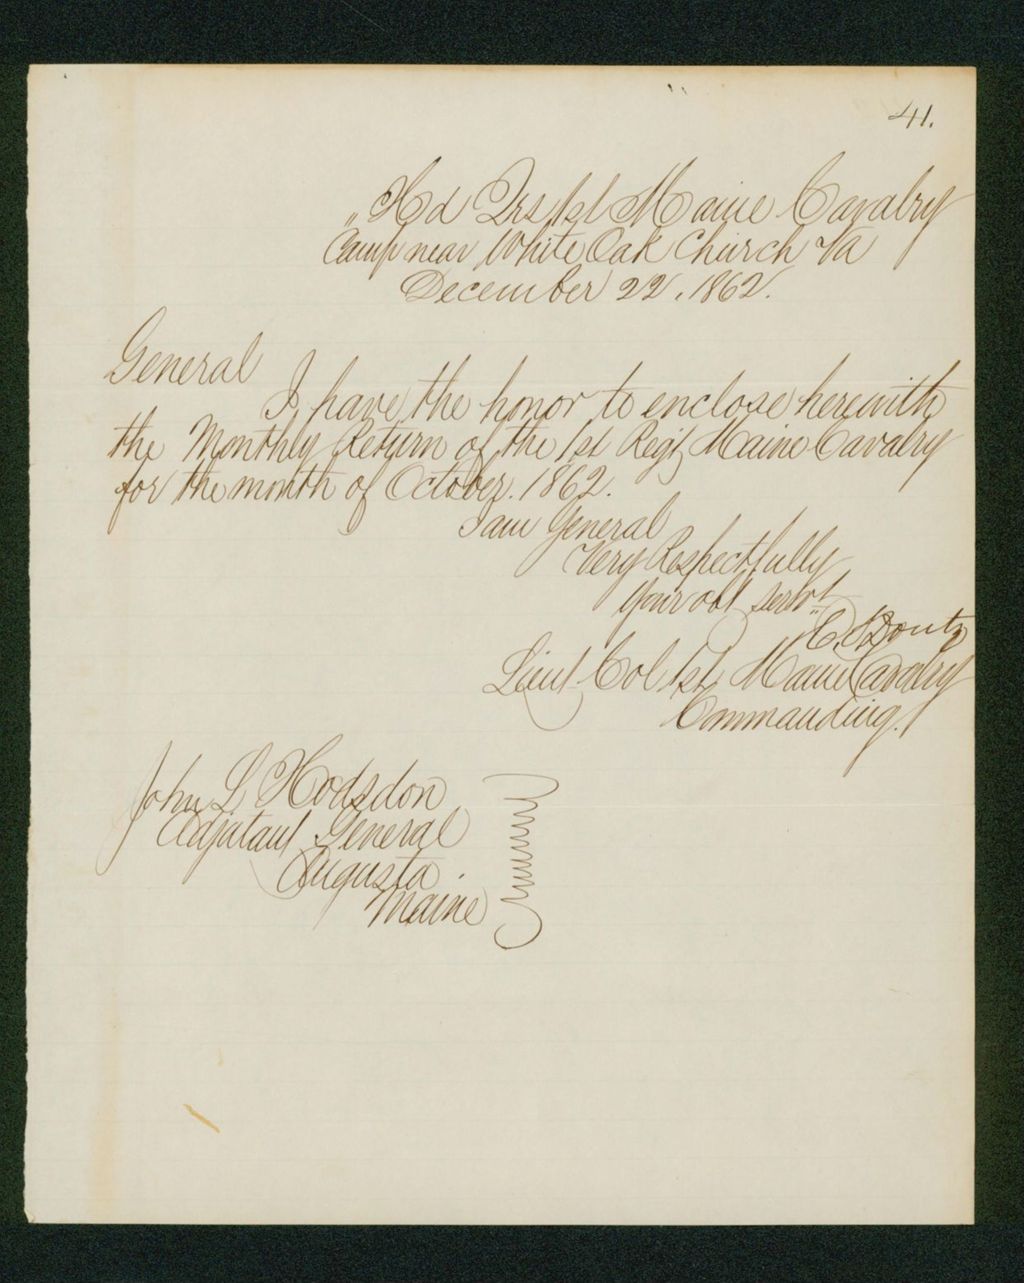 41.
„Hd Qrs 1st Maine Cavalry
Camp near White Oak Church Va
December 22, 1862.
General
I have the honor to enclose herewith
the Monthly Return of the 1st Regt Maine Cavalry
for the month of October. 1862.
I am General
Very Respectfully
Your obt servt
C. S. Douty
Lieut Col 1st Maine Cavalry
Commanding.
John L Hodsdon
Adjutant General
Augusta
Maine